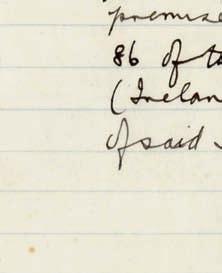 premise
86 of t
(Irelan
of said